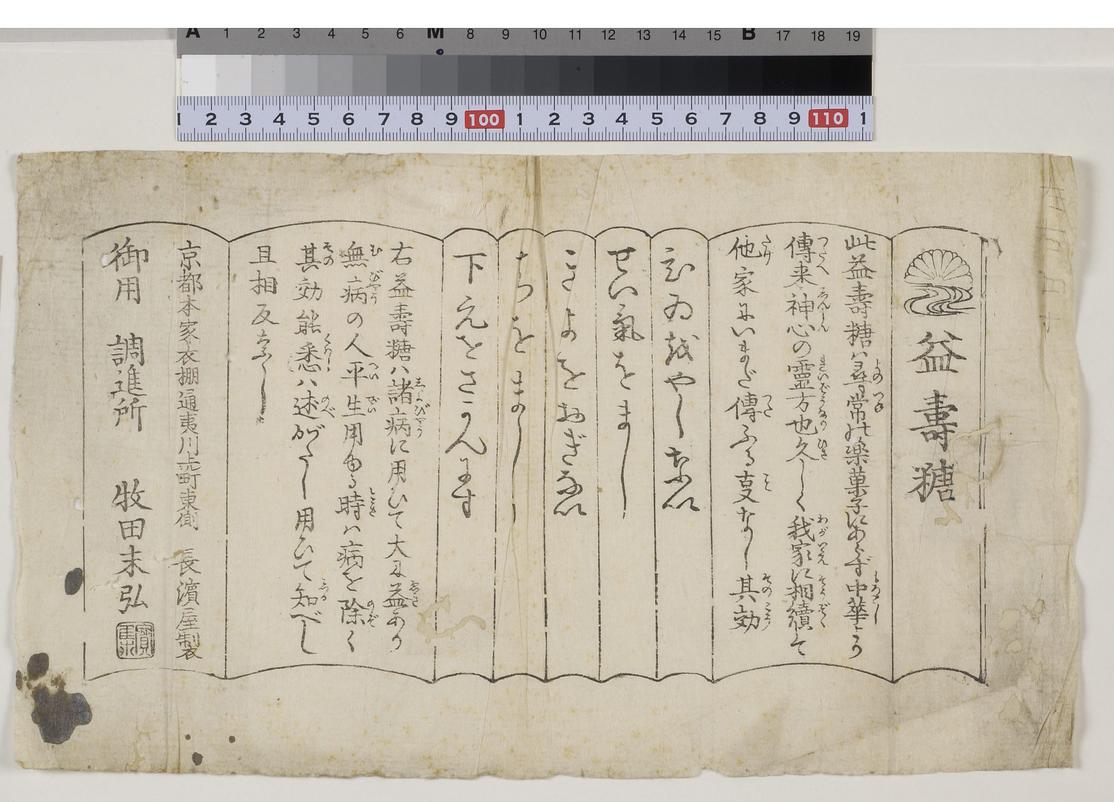 A 1 2 3 4 5 6 M 8 9 10 11 12 13 14 15 B 17 18 19
1 2 3 4 5 6 7 8 9 100 1 2 3 4 5 6 7 8 9 110 1
益壽糖
此益壽糖ハ尋常の樂菓子にあらず中華より
傳来神心の靈方也久しく我家に相續て
他家にいまだ傳ふる事なし其効
ひゐをやしなひ
せい氣をまし
きよをおぎなひ
ちをまし
下元をさかんにす
右益壽糖ハ諸病に用ひて大に益あり
無病の人平生用る時ハ病を除く
其効能悉ハ述がたし用ひて知べし
且相反なし
京都本家衣棚通夷川上町東側 長濱屋製
御用 調進所 牧田末弘